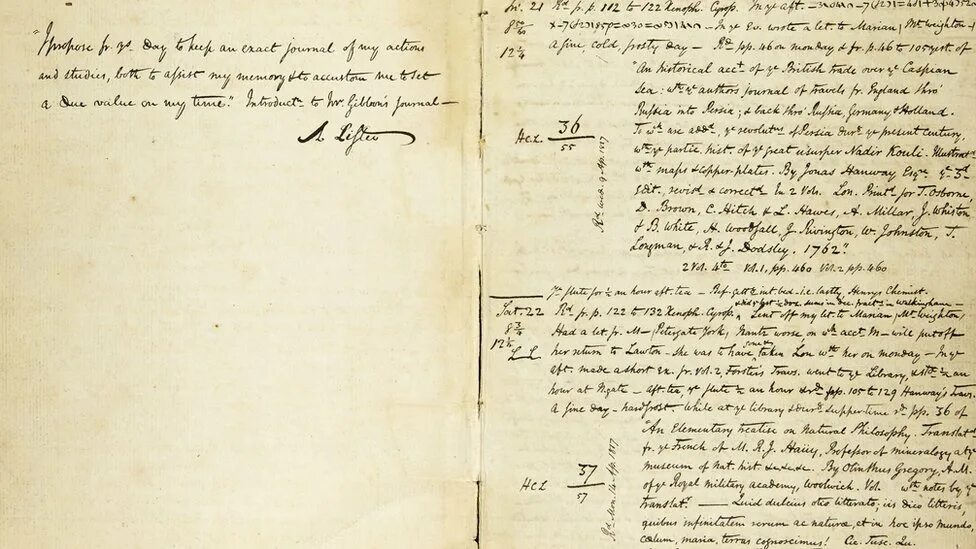 "I propose fr. ys. Day to keep an exact journal of my actions
and studies, both to assist my memory & to accustom me to set
a due value on my time." Introductn. to Mr. Gibbon's Journal —
A Lister
Fri. 21
8 5/10
12 1/4
Rd. fr. p. 112 to 122 Xenoph. Cyrop. In ye aft.
— In ye Ev. wrote a let. to Marian, Mt. Weighton —
A fine, cold, frosty day — Rd. pp. 46 on monday & fr. p. 46 to 105 yest. of
"An historical acct. of ye British trade over ye Caspian
Sea: wth. ye authors journal of travels fr. England thro'
Russia into Persia; & back thro' Russia, Germany, & Holland.
To wh. are addd. ye revolutns. of Persia durg. ye present century,
wth. ye partic. hist. of ye great usurper Nadir Kouli. Illustratd.
wth. maps & copper-plates. By Jonas Hanway Esqr. ye 3d.
Edit. revisd. & correctd. In 2 Vols. Lon. Printd. for T. Osborne,
D. Brown, C. Hitch & L. Hawes, A. Millar, J. Whiston
& B. White, H. Woodfall, J. Rivington, W. Johnston, T.
Longman, & R. & J. Dodsley. 1762."
2 Vol. 4to. Vol. 1, pp. 460 Vol. 2 pp. 460
HCL 36
55
Rd. wed. 9 Apr. 1817
Ye flute for 1/2 an hour aft. tea — Bef. gettg. int. bed — i.e. lastly Henrys Chemist.
Sat. 22
8 3/4
12 1/2
LL
Rd. fr. p. 122 to 132 Xenoph. Cyrop. Sent off my let. to Marian, Mt. Weighton,
Had a let. fr. M— (Petergate York) Nantz worse, on wh. acct. M— will put off
her return to Lawton — she was to have taken Lou wth. her on monday — In ye
aft. made a short ex. fr. vol. 2, Forster's Travs. went to ye Library, & 1/2 an
hour at Ngate — Aft. tea, ye flute 1/2 an hour & rd. pp. 105 to 129 Hanway's Travs.
A fine day — hard frost. While at ye library & durg. supper time rd. pp. 36 of
"An Elementary treatise on Natural Philosophy. Translatd.
fr. ye French of M. R. J. Haüy, Professor of mineralogy at ye
museum of nat. hist. &c. &c. &c. By Olinthus Gregory, A.M.
of ye Royal military academy, Woolwich. Vol. wth. notes by ye
translatr. — Quid dulcius otio litterato; iis dico litteris,
quibus infinitatem rerum ac naturæ, et in hoc ipso mundo,
cœlum, maria, terras cognoscimus! Cic. Tusc. Qu.
HCL 37
57
Rd. Mon. 14 Ap. 1817